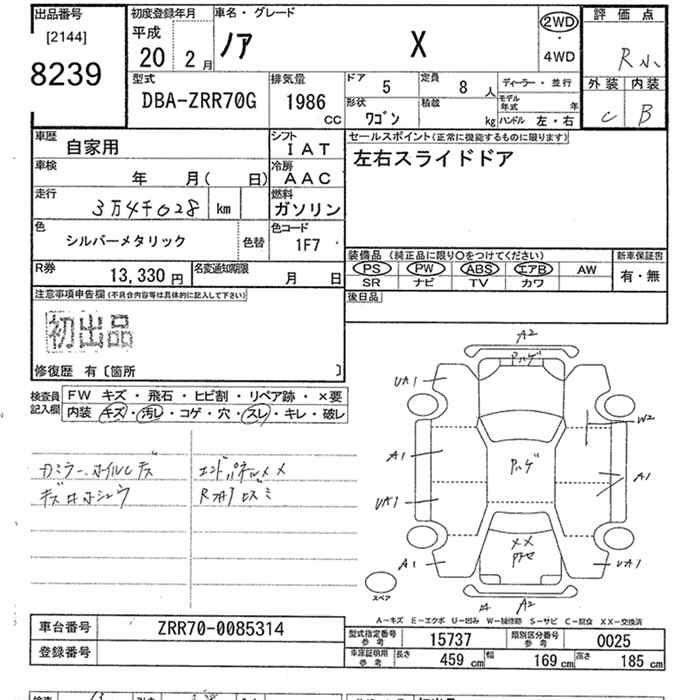 出品番号
[2144]
8239
初度登録年月
平成
20 2月
車名・グレード
ノア X
2WD
・
4WD
評価点
R
外装 内装
C B
型式
DBA-ZRR70G
排気量
1986
CC
ドア 5
定員 8 人
形状 ワゴン
積載 kg
ディーラー・並行
モデル年式 年
ハンドル 左・右
車歴 自家用
シフト
IAT
車検 年 月( 日)
冷房
AAC
走行 3万4千028 km
燃料
ガソリン
色 シルバーメタリック 色替
色コード
1F7
R券 13,330 円
名変通知期限 月 日
セールスポイント(正常に機能するものに限ります)
左右スライドドア
装備品(純正品に限り○をつけてください)
PS PW ABS エアB AW
SR ナビ TV カワ
新車保証書
有・無
後日品
注意事項申告欄(不具合内容等は具体的に記入して下さい)
初出品
修復歴 有〔箇所 〕
検査員記入欄
FW キズ・飛石・ヒビ割・リペア跡・×要
内装 キズ・汚レ・コゲ・穴・スレ・キレ・破レ
A2
UA1
W2
A1
A1
UA1
××
A1
UA1
A2
スペア
A-キズ E-エクボ U-凹み W-補修跡 S-サビ C-腐食 XX-交換済
車台番号 ZRR70-0085314
登録番号
型式指定番号 参考 15737
類別区分番号 参考 0025
車庫証明用 参考 長さ 459 cm 幅 169 cm 高さ 185 cm